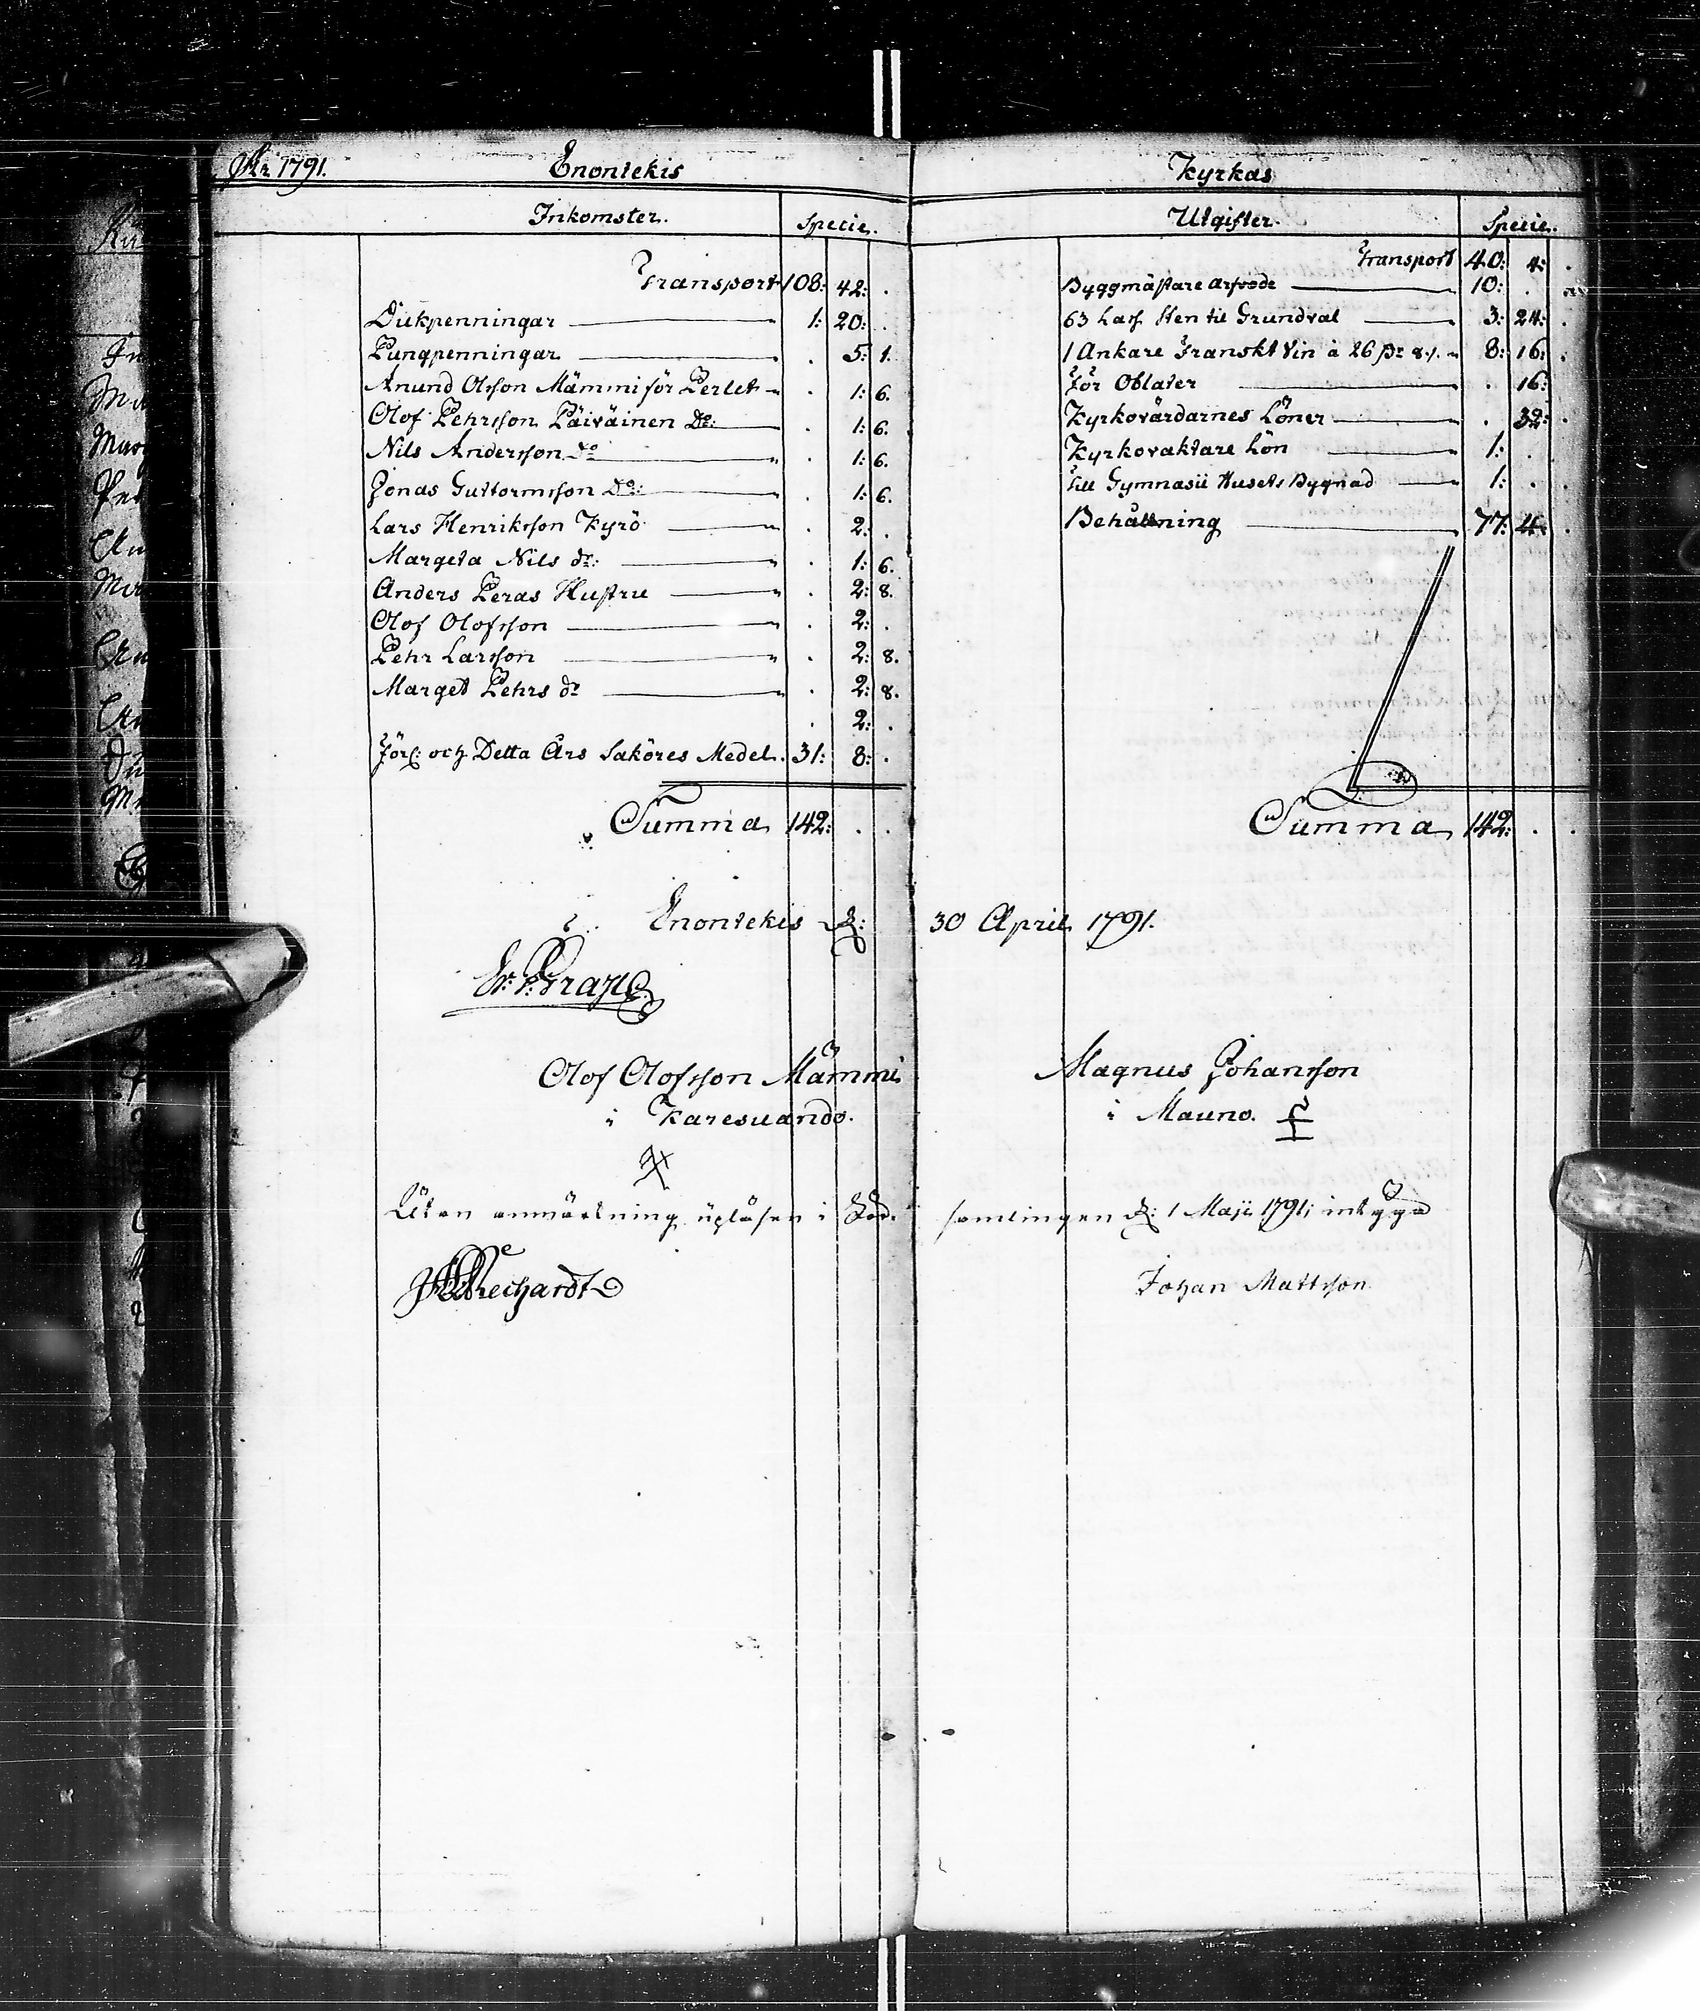 Åhr 1791. Enontekis
Inkomster. Specie.
Transport 108: 42: .
Diekpenningar 1: 20: .
Pungpenningar . 5: 1.
Anund Olsson Mämmi för Perlet . 1: 6.
Olof Pehrsson Päiväinen Do: . 1: 6.
Nils Andersson do . 1: 6.
Jonas Guttormsson Do: . 1: 6.
Lars Henriksson Kyrö . 2: .
Margeta Nils dr: . 1: 6.
Anders Peras Hustru . 2: 8.
Olof Olofsson . 2: .
Pehr Larsson . 2: 8.
Marget Pehrs dr . 2: 8.
. 2: .
Förl: och Detta Års Saköres Medel. 31: 8: .
Summa 142: . .
Kyrkas
Utgifter. Specie.
Transport 40: 4: .
Byggmästare arfvode 10: .
63 Lass Sten til Grundval 3: 24: .
1 Ankare Franskt Vin à 26 8: 16: .
För Oblater . 16:
Kyrkovärdarnes Löner . 32: .
Kyrkovaktare Lön 1: . .
till Gymnasii Husets Bygnad 1: . .
Behållning 77: 4: .
Summa 142: . .
Enontekis d: 30 April 1791.
Er: P: Grape
Olof Olofsson Mämmi Magnus Johansson
i Karesuando. i Mauno.
Utan anmärkning upläsen i Sock. samlingen d: 1 Maji 1791; intyga
Johan Mattsson